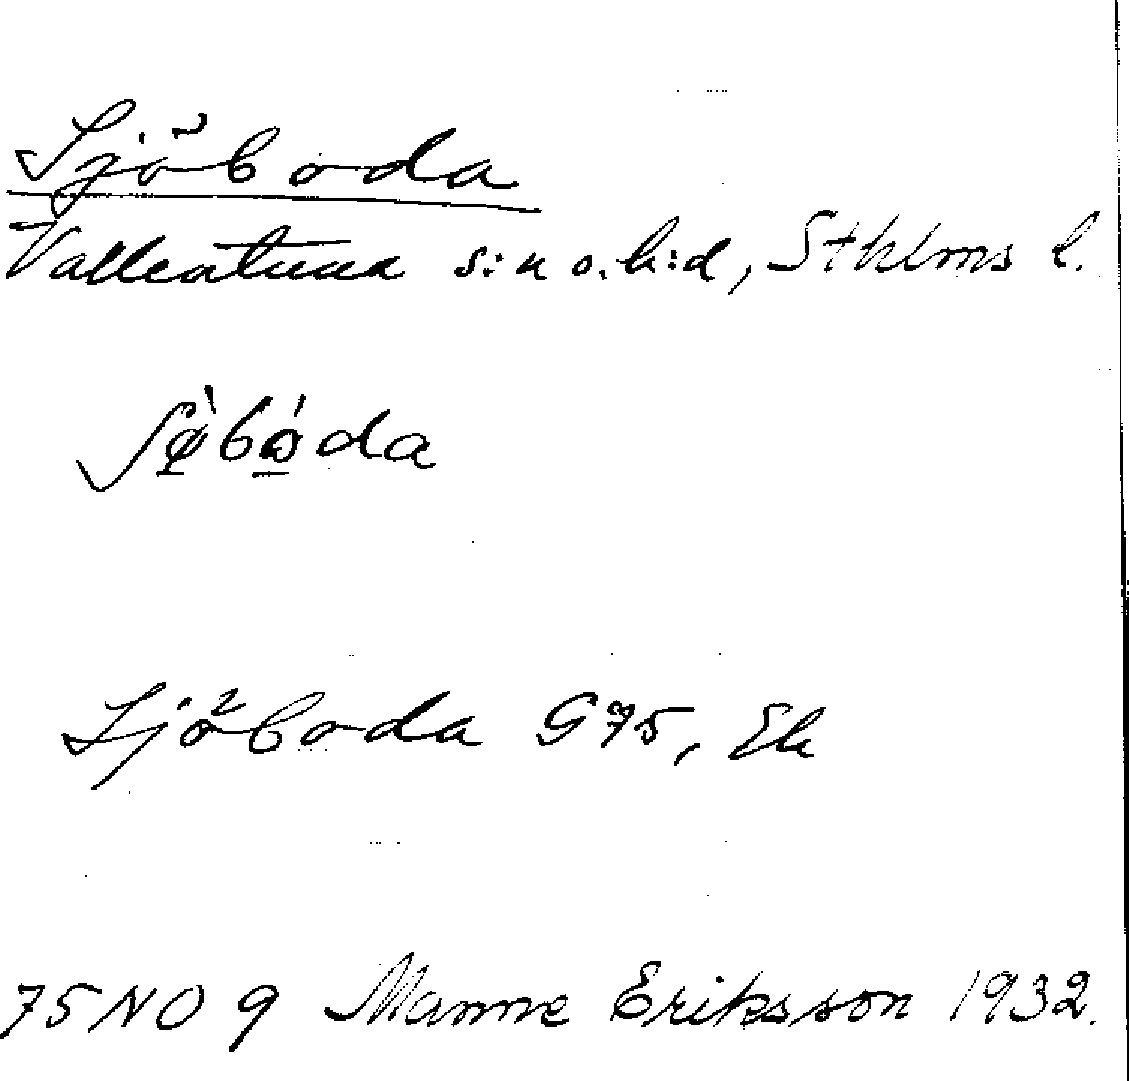 Sjöboda
Vallentuna s:n o. h:d, Sthlms l.
Sjöboda G 75, Ek
75 NO 9 Manne Eriksson 1932.